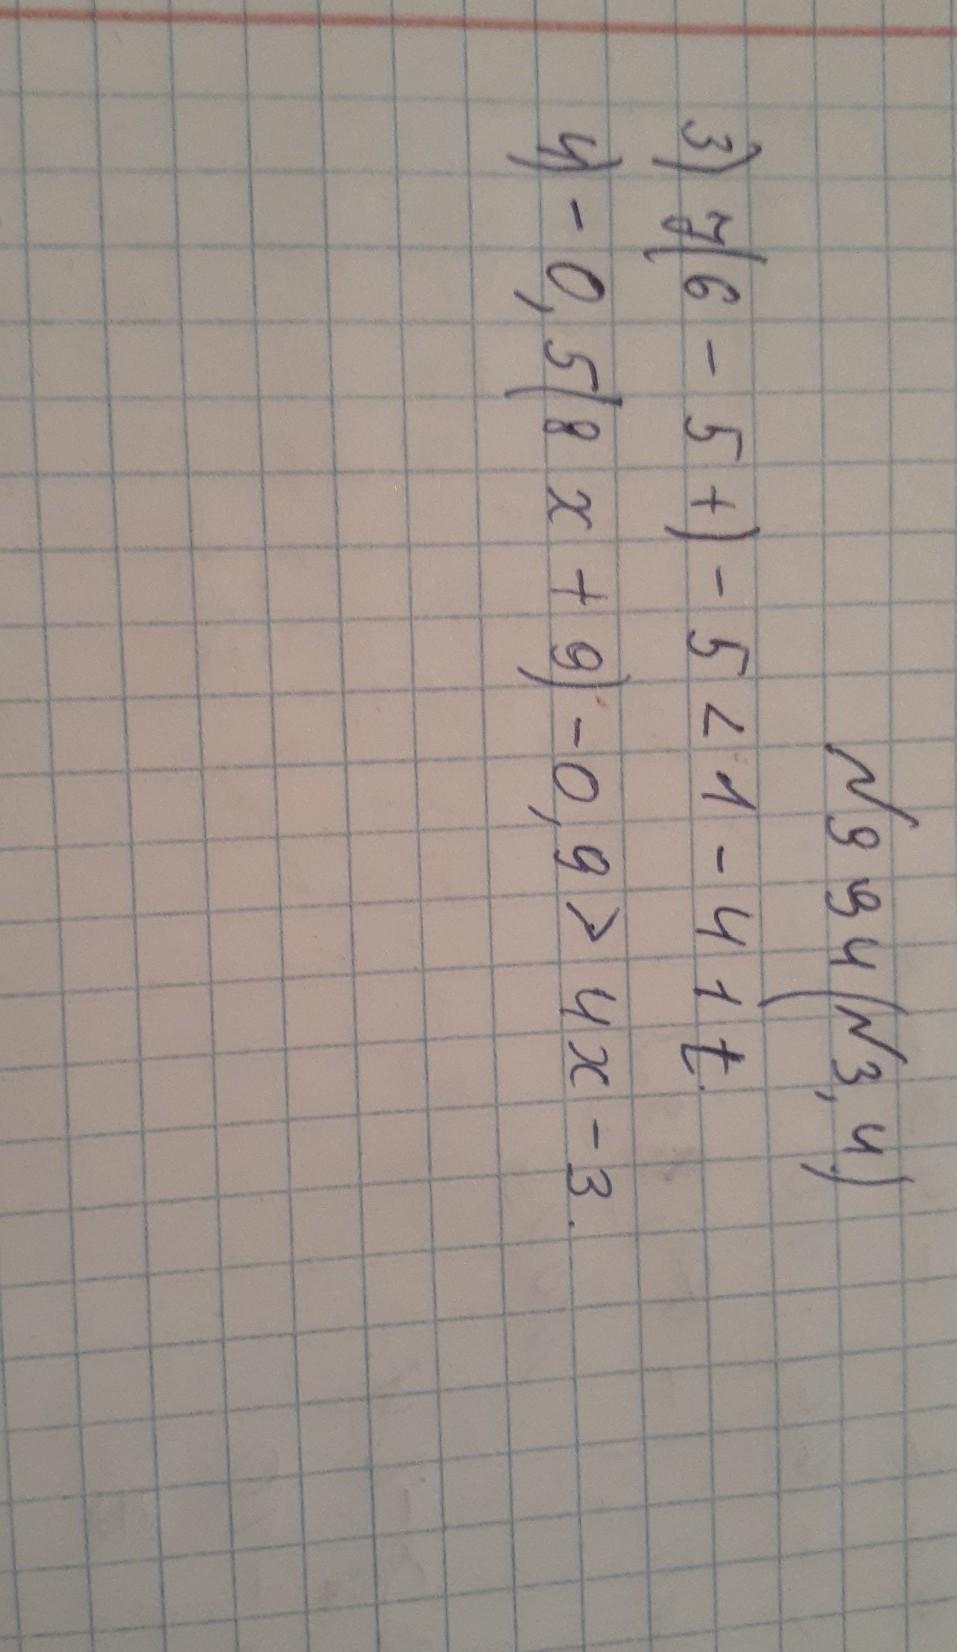 N994(N3,4)
3) 7(6-5t)-5<1-41t.
4) -0,5(8x+9)-0,9>4x-3.